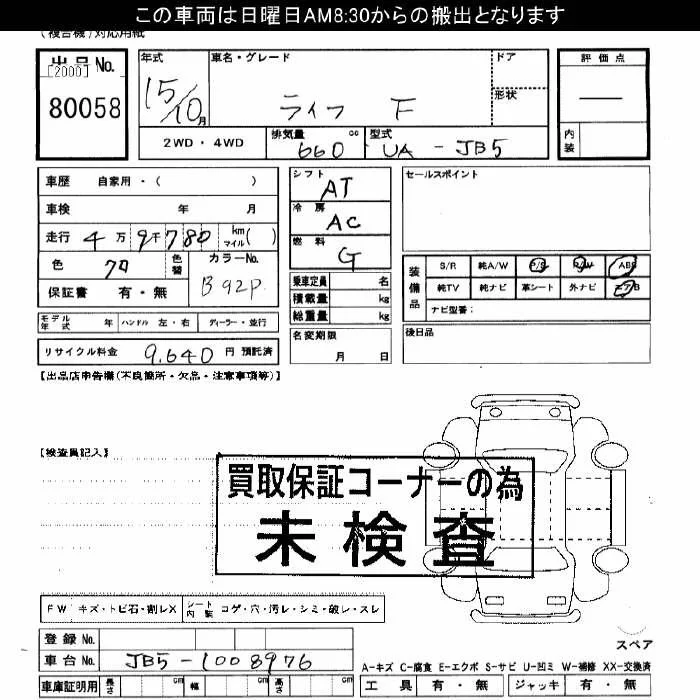 この車両は日曜日AM8:30からの搬出となります
(複合機)対応用紙
出品No.
[2000]
80058
年式 15/10月
車名・グレード ライフ F
ドア
形状
評価点
内装
2WD・4WD
排気量 660 cc
型式 UA - JB5
車歴 自家用・( )
車検 年 月
走行 4万 9千780 km マイル( )
色 クロ 色替
カラーNo. B92P
保証書 有・無
シフト AT
冷房 AC
燃料 G
乗車定員 名
積載量 kg
総重量 kg
名変期限 月 日
セールスポイント
装備品
S/R 純A/W P/S P/W ABS
純TV 純ナビ 革シート 外ナビ エアB
ナビ型番:
後日品
モデル年式 年 ハンドル 左・右 ディーラー・並行
リサイクル料金 9,640 円 預託済
【出品店申告欄(不良箇所・欠品・注意事項等)】
【検査員記入】
買取保証コーナーの為
未検査
FW キズ・トビ石・割レX
シート内装 コゲ・穴・汚レ・シミ・破レ・スレ
登録No.
車台No. JB5-1008976
車庫証明用 長さ cm 幅 cm 高さ cm
スペア
A-キズ C-腐食 E-エクボ S-サビ U-凹ミ W-補修 XX-交換済
工具 有・無 ジャッキ 有・無